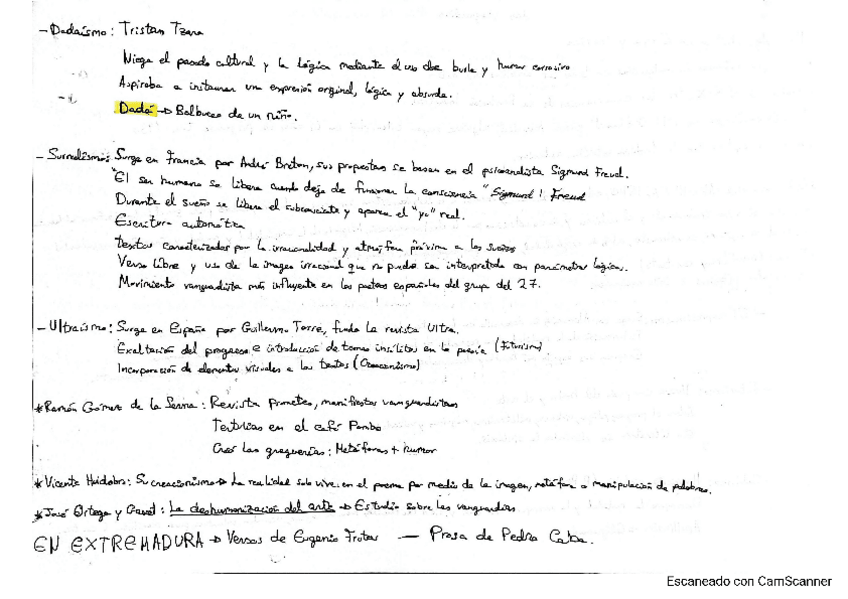 - Dadaísmo: Tristan Tzara
Niega el pasado cultural y la lógica mediante el uso de burla y humor corrosivo
Aspiraba a instaurar una expresión original, lógica y absurda.
Dadá → Balbuceo de un niño.
- Surrealismo: Surge en Francia por André Breton, sus propuestas se basan en el psicoanalista Sigmund Freud.
"El ser humano se libera cuando deja de funcionar la consciencia" Sigmund Freud
Durante el sueño se libera el subconsciente y aparece el "yo" real.
Escritura automática
Textos caracterizados por la irracionalidad y atmósfera próxima a los sueños
Verso libre y uso de la imagen irracional que no puede ser interpretada con parámetros lógicos.
Movimiento vanguardista más influyente en los poetas españoles del grupo del 27.
- Ultraísmo: Surge en España por Guillermo Torre, funda la revista Ultra.
Exaltación del progreso e introducción de temas insólitos en la poesía (Futurismo)
Incorporación de elementos visuales a los textos (Creacionismo)
* Ramón Gómez de la Serna: Revista Prometeo, manifiestos vanguardistas
Tertulias en el café Pombo
Creó las greguerías: Metáforas + humor
* Vicente Huidobro: Su creacionismo → La realidad solo vive en el poema por medio de la imagen, metáfora o manipulación de palabras.
* José Ortega y Gasset: La deshumanización del arte → Estudio sobre las vanguardias
EN EXTREMADURA → Versos de Eugenio Frutos — Prosa de Pedro Caba.
Escaneado con CamScanner